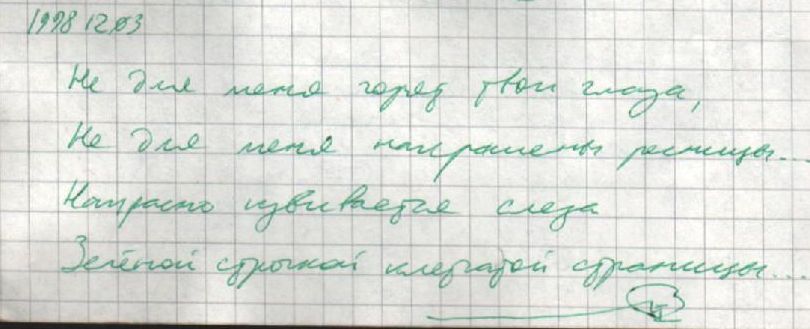 1998 12.03
Не для меня горят твои глаза,
Не для меня накрашены ресницы...
Напрасно извивается слеза
Зелёной строчкой клетчатой страницы...